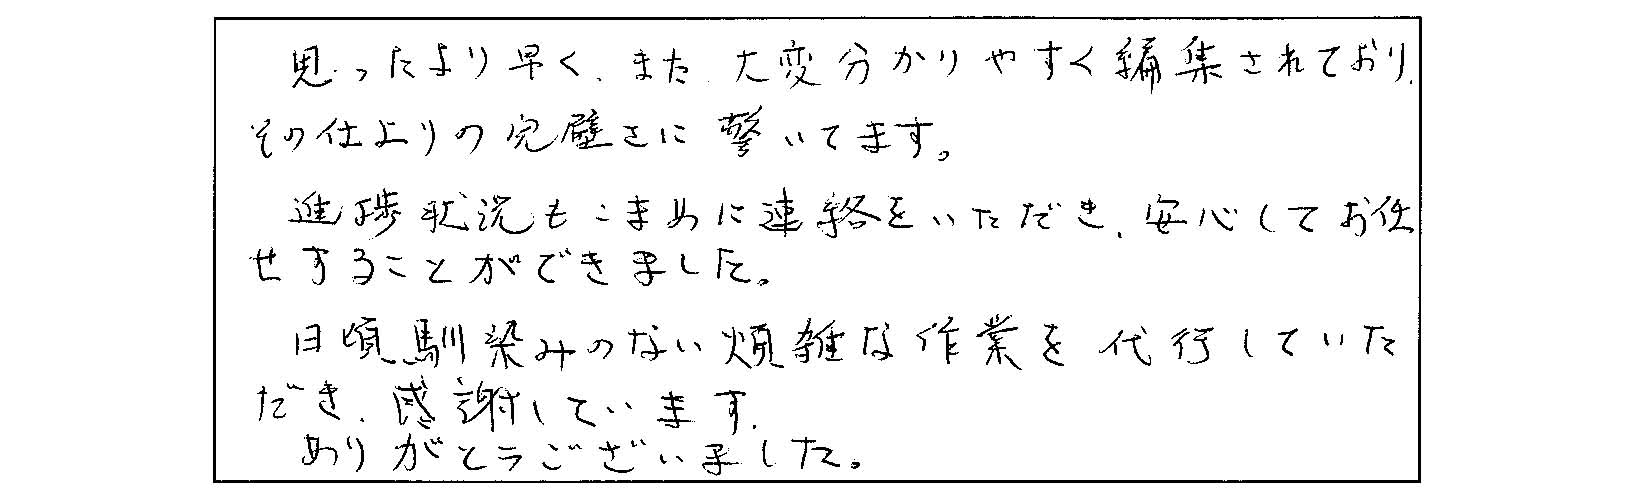 思ったより早く、また、大変分かりやすく編集されており、
その仕上りの完璧さに驚いてます。
進捗状況もこまめに連絡をいただき、安心してお任
せすることができました。
日頃馴染みのない煩雑な作業を代行していた
だき、感謝しています。
ありがとうございました。